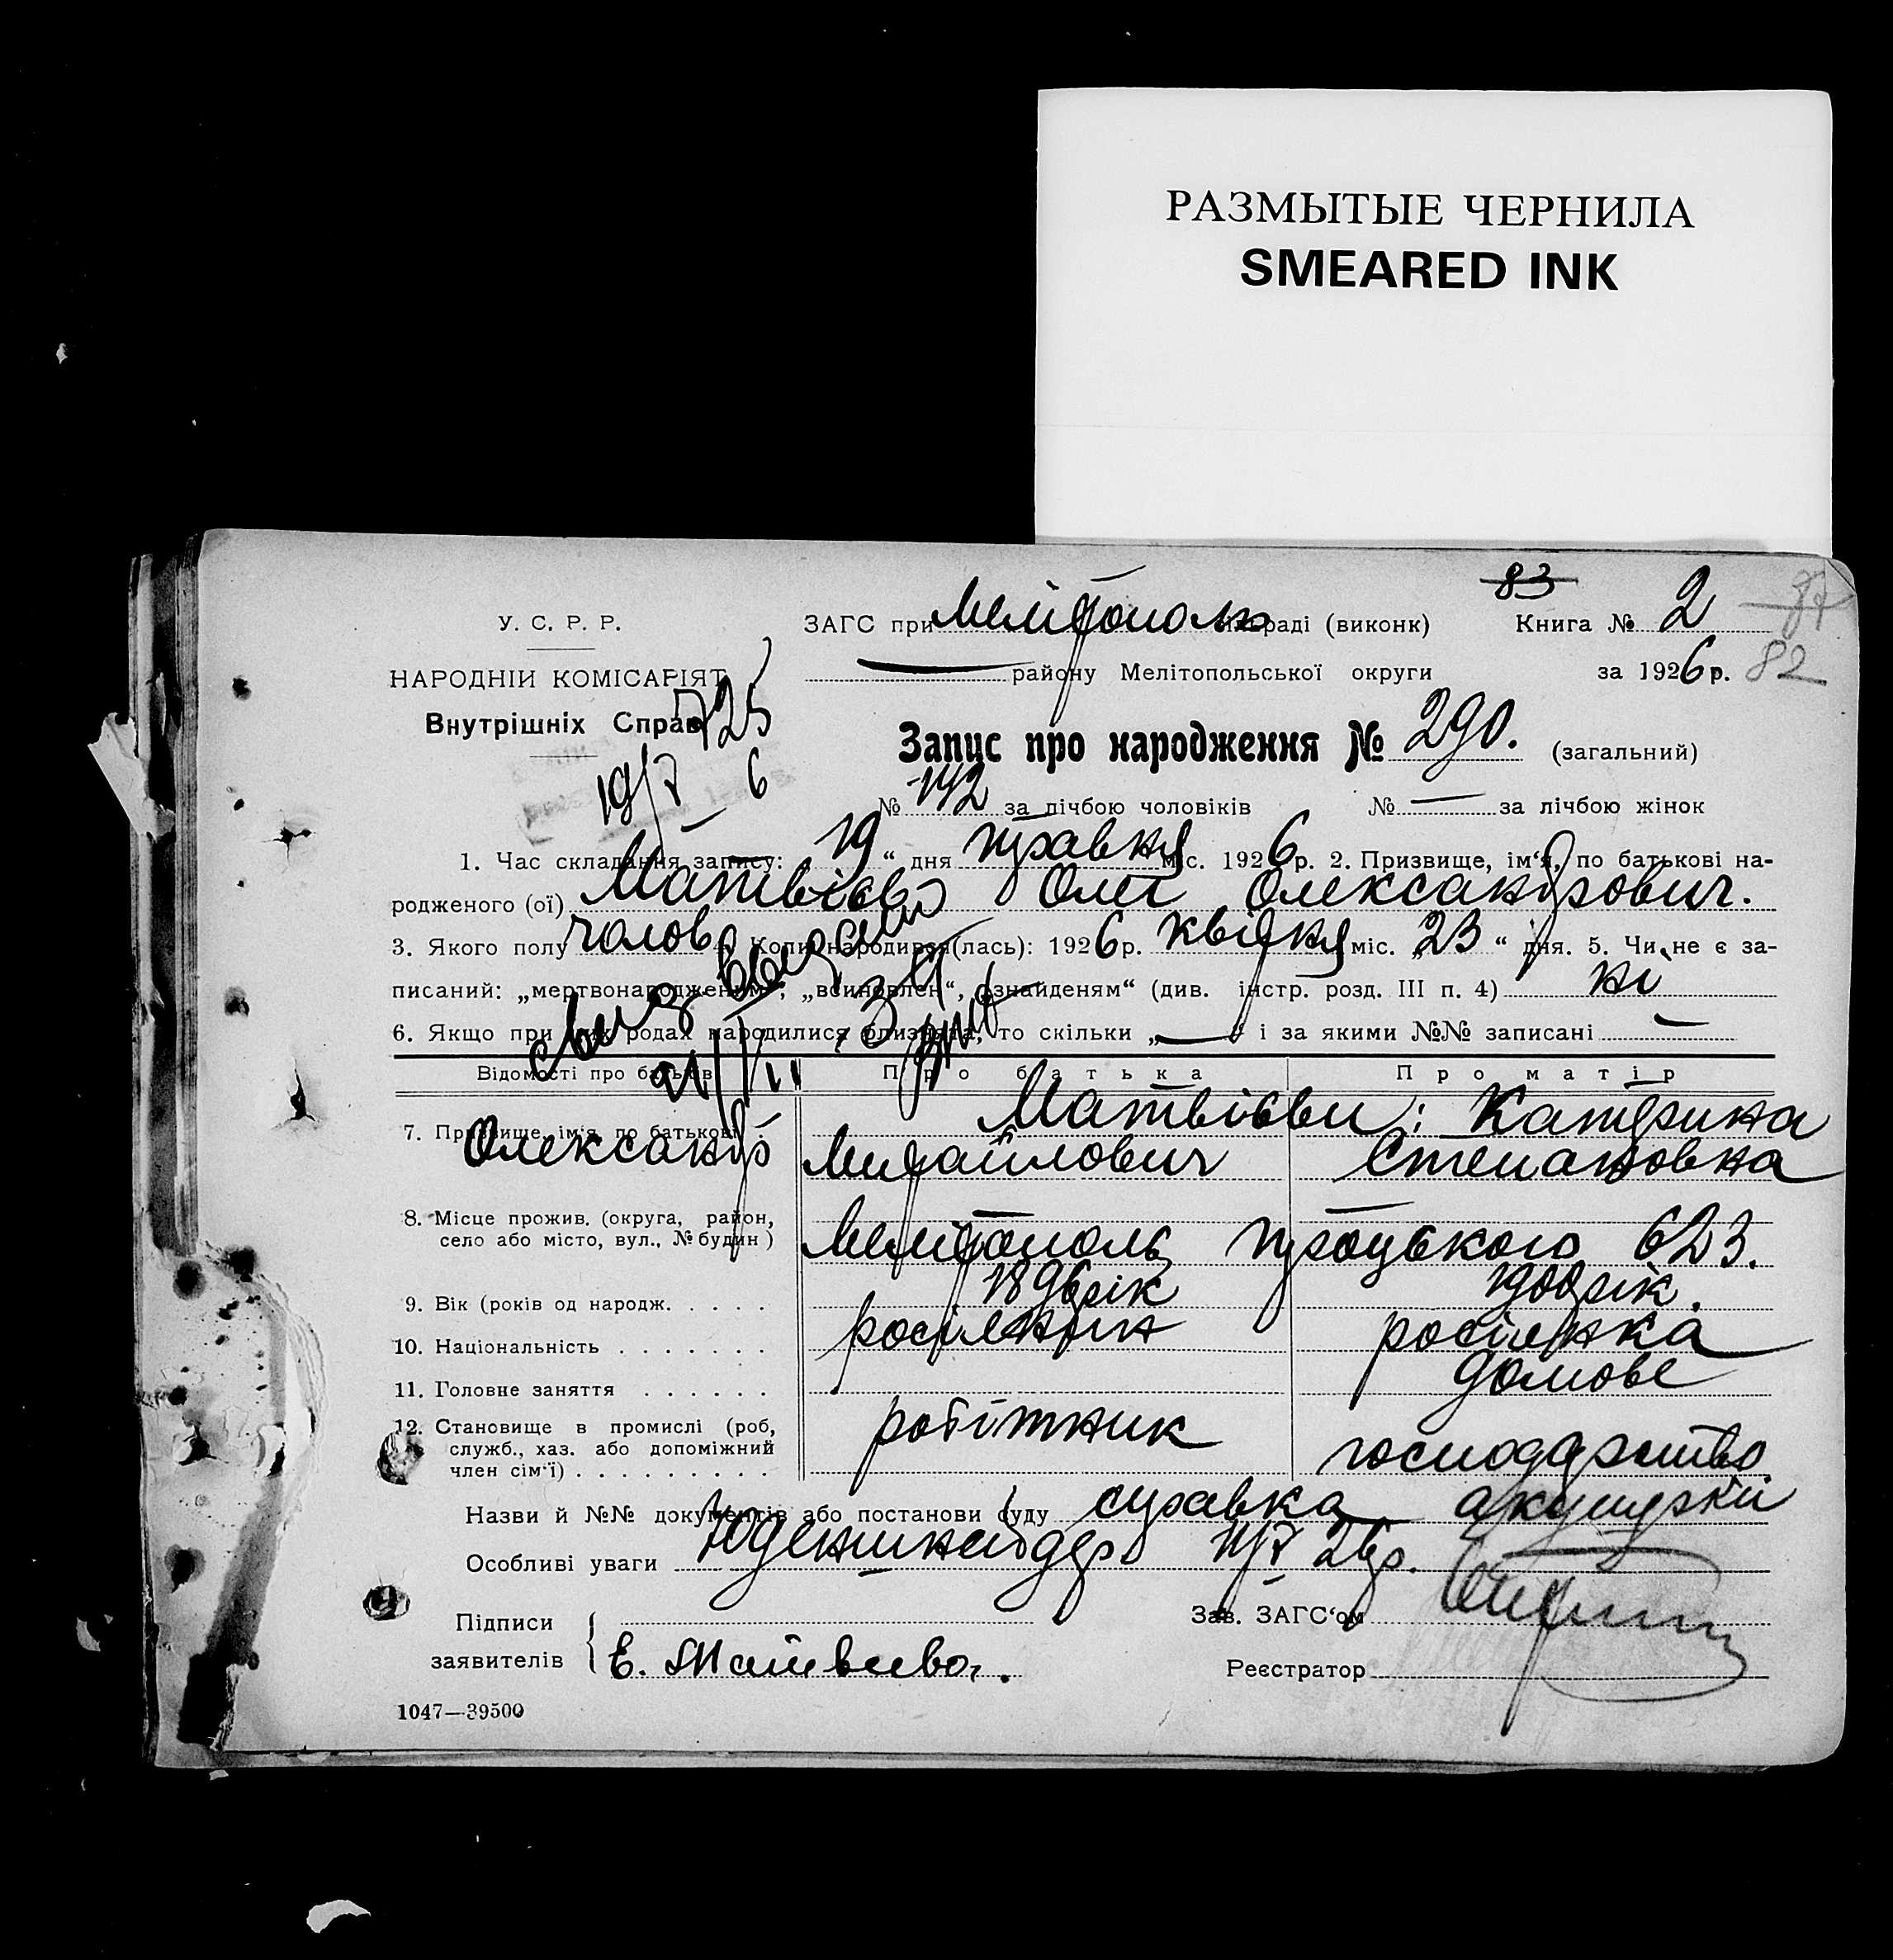 РАЗМЫТЫЕ ЧЕРНИЛА
SMEARED INK
83
У. С. Р. Р.
ЗАГС при Мелітополь міськраді (виконк) Книга № 2
82
НАРОДНІЙ КОМІСАРІЯТ
— району Мелітопольської округи за 1926 р.
Внутрішніх Справ
725
Запис про народження № 290. (загальний)
19/7 6
№ 142 за лічбою чоловіків № — за лічбою жінок
1. Час складання запису: 19 “ дня травня міс. 1926 р. 2. Призвище, ім‘я, по батькові на-
родженого (ої) Матвієв Олег Олександрович.
3. Якого полу чолов 4. Коли народився(лась): 1926 р. квітня міс. „23 “ дня. 5. Чи не є за-
писаний: „мертвонародженим“, „всиновлен“, „знайденям“ (див. інстр. розд. III п. 4) ні
6. Якщо при цих родах народилися близнята, то скільки „—“ і за якими №№ записані —
Відомості про батьків Про батька Про матір
7. Призвище, ім‘я, по батькові: Матвієви: Катерина
Олександр Михайлович Степановна
8. Місце прожив. (округа, район,
село або місто, вул., № будин) Мелітополь Троцького 623.
9. Вік (років од народж. . . . . 1896 рік 1900 рік.
10. Національність . . . . . . . росіянин росіянка
11. Головне заняття . . . . . . домове
12. Становище в промислі (роб, робітник
служб., хаз. або допоміжний господарство
член сім‘ї) . . . . . . . . .
Назви й №№ документів або постанови суду справка акушерки
Особливі уваги 26р.
Підписи Зав. ЗАГС‘ом
заявителів Е. Матвеева. Реєстратор
1047—39500